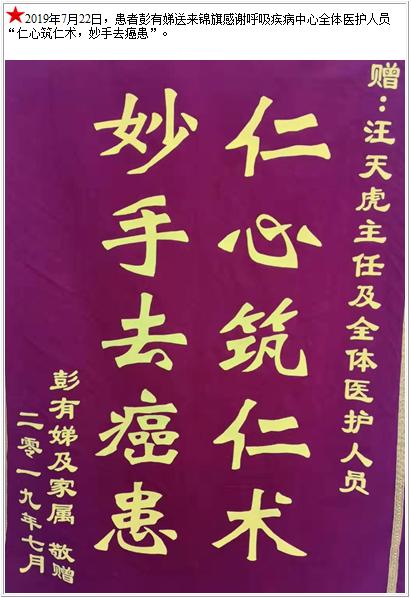 ★2019年7月22日，患者彭有娣送来锦旗感谢呼吸疾病中心全体医护人员
“仁心筑仁术，妙手去癌患”。
赠：汪天虎主任及全体医护人员
仁心筑仁术
妙手去癌患
彭有娣及家属 敬赠
二零一九年七月